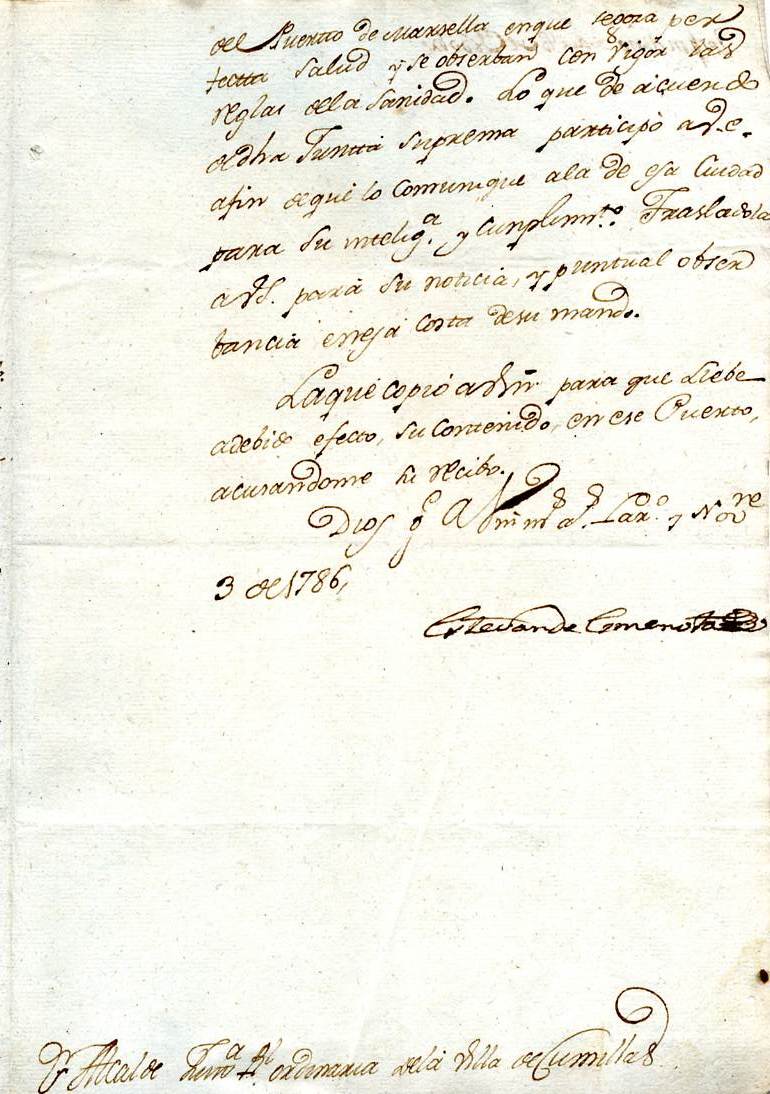 del Puerto de Marsella en que se goza per
fectta Salud y se observan con vigor las
reglas dela Sanidad. Lo que de acuerdo
de dha Juntta Suprema participo a V.e.
afin de que lo Comunique ala de esa Ciudad
para su intelig.a y Cunplim.to Trasladola
a VS. para su noticia, y puntual obser
bancia en esa costa desu mando.
La que copio a Vm para que llebe
adebido efecto, su Contenido, en ese Puerto,
acusandome su recibo.
Dios g.e a Vm m.s a.s Lar.do y Nov.re
3 de 1786,
Estevan de
Sr Alcalde Just.a Rl ordinaria dela Villa de Cumillas